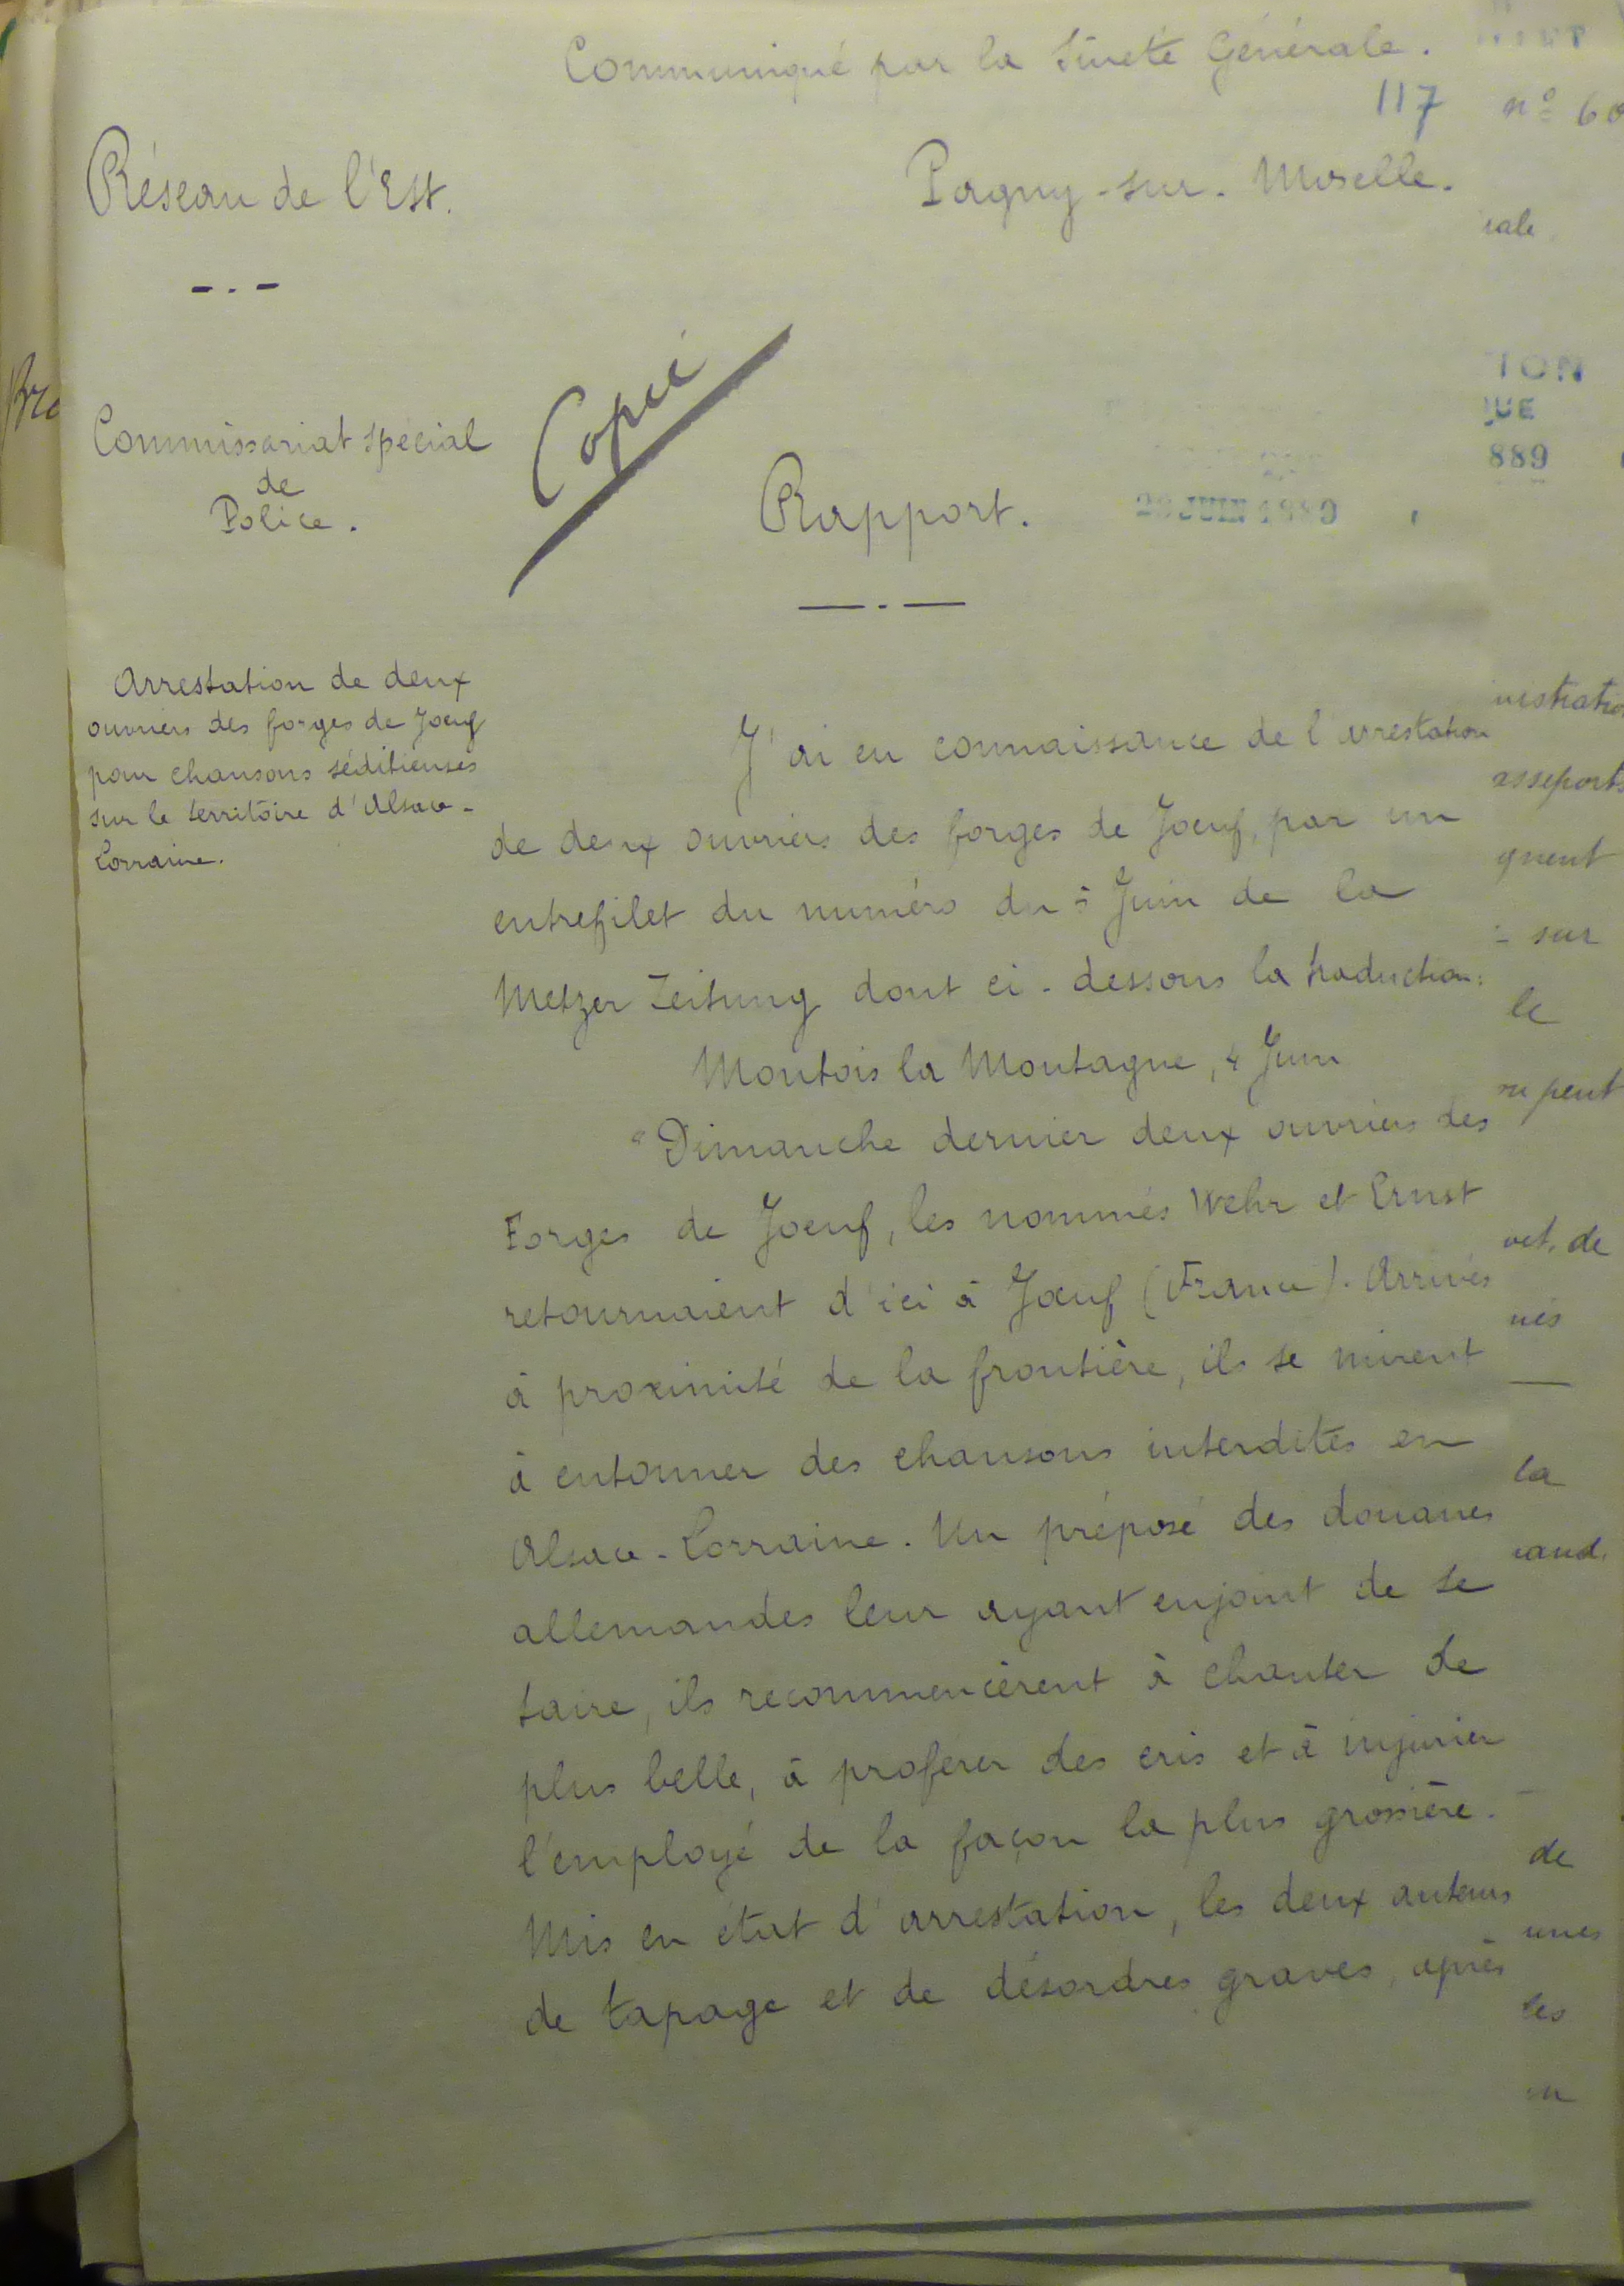 Communiqué par la Sûreté Générale.
117
n° 60
Réseau de l'Est.
Pagny-sur-Moselle.
iale
Copié
Commissariat spécial
de
Police.
Rapport.
JUIN 1889
TION
QUE
889
Arrestation de deux
ouvriers des forges de Joeuf
pour chansons séditieuses
sur le territoire d'Alsace-
Lorraine.
J'ai eu connaissance de l'arrestation
de deux ouvriers des forges de Joeuf, par un
entrefilet du numéro du 5 Juin de la
Metzer Zeitung dont ci-dessous la traduction:
Montois la Montagne, 4 Juin
"Dimanche dernier deux ouvriers des
Forges de Joeuf, les nommés Wehr et Ernst
retournaient d'ici à Joeuf (France). Arrivés
à proximité de la frontière, ils se mirent
à entonner des chansons interdites en
Alsace-Lorraine. Un préposé des douanes
allemandes leur ayant enjoint de se
taire, ils recommencèrent à chanter de
plus belle, à proférer des cris et à injurier
l'employé de la façon la plus grossière.
Mis en état d'arrestation, les deux auteurs
de tapage et de désordres graves, après
nistratio
asseports
gnent
sur
le
peut
vet. de
nés
la
rand.
de
unes
les